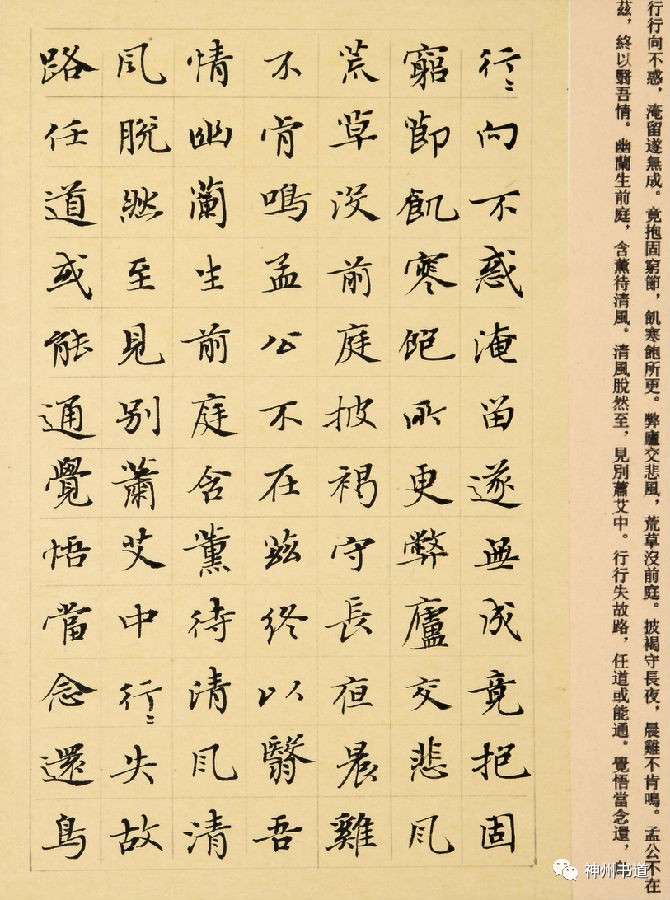 行行向不惑，淹留遂無成。竟抱固窮節，飢寒飽所更。弊廬交悲風，荒草沒前庭。披褐守長夜，晨雞不肯鳴。孟公不在
茲，終以翳吾情。幽蘭生前庭，含薰待清風。清風脫然至，見別蕭艾中。行行失故路，任道或能通。覺悟當念還，
行〻向不惑淹留遂無成竟抱固
窮節飢寒飽所更弊廬交悲風
荒草沒前庭披褐守長夜晨雞
不肯鳴孟公不在茲終以翳吾
情幽蘭生前庭含薰待清風清
風脫然至見別蕭艾中行〻失故
路任道或能通覺悟當念還鳥
神州书道